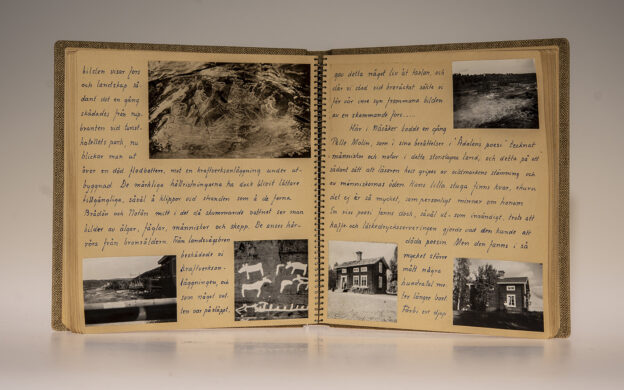 bilden visar fors
och landskap så-
dant det en gång
skådades från rup-
branten vid turist-
hotellets park, nu
blickar man ut
över en död flodbotten, med en kraftverksanläggning under ut-
byggnad. De märkliga hällristningarna ha dock blivit lättare
tillgängliga, såväl å klippor vid stranden som å de forna
Brådön och Notön mitt i det då skummande vattnet ser man
bilder av älgar, fåglar, människor och skepp. De anses här-
röra från bronsåldern. Från landsvägsbron
beskådade vi
kraftverksan-
läggningen, och
som något vat-
ten var påsläppt,
gav detta något liv åt tavlan, och
där vi stod vid broräcket sökte vi
för vår inre syn frammana bilden
av en skummande fors....
Här i Näsåker bodde en gång
Pelle Molin, som i sina berättelser i "Ådalens poesi" tecknat
människor och natur i detta storslagna land, och detta på ett
sådant sätt att läsaren helt gripes av vildmarkens stämning och
av människornas öden. Hans lilla stuga finns kvar,
det ej är så mycket, som personligt minner om honom.
En viss poesi fanns dock, såväl ut- som invändigt, trots att
kaffe- och läskedrycksserveringen gjorde vad den kunde att
döda poesin. Men den fanns i så
mycket större
mått några
hundratal me-
ter längre bort.
Förbi ett djupt